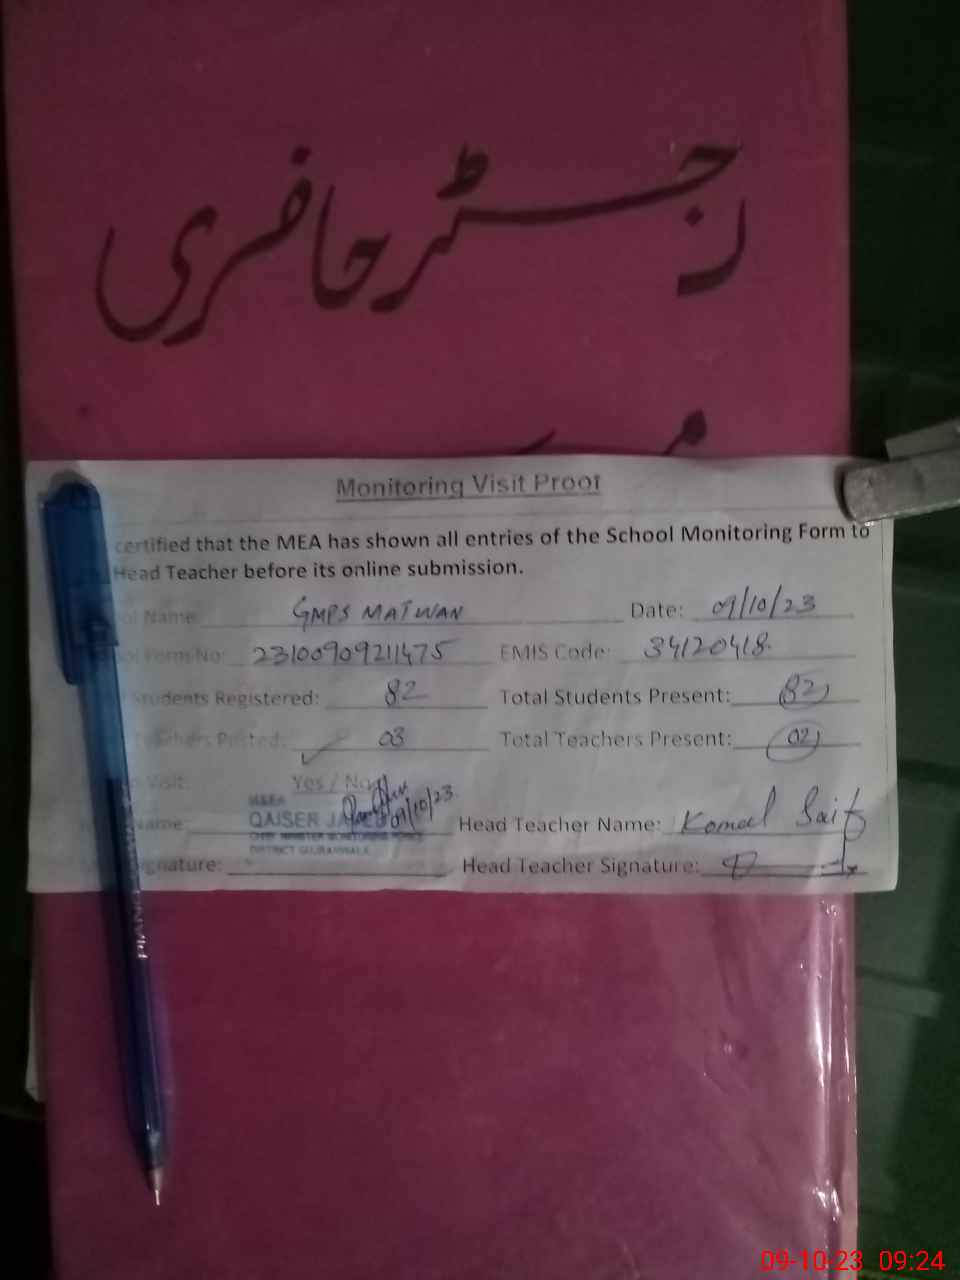 رجسٹر حاضری
Monitoring Visit Proof
certified that the MEA has shown all entries of the School Monitoring Form to
Head Teacher before its online submission.
Name: GMPS MATWAN Date: 09/10/23
Form No: 23100909211475 EMIS Code: 34120418
Students Registered: 82 Total Students Present: 82
Teachers Posted: 03 Total Teachers Present: 02
Visit: Yes / No
MEA
QAISER 09/10/23
Name: Head Teacher Name: Komal Saif
CHIEF MINISTER MONITORING FORCE
DISTRICT GUJRANWALA
Signature: Head Teacher Signature:
PIANO
09-10-23 09:24